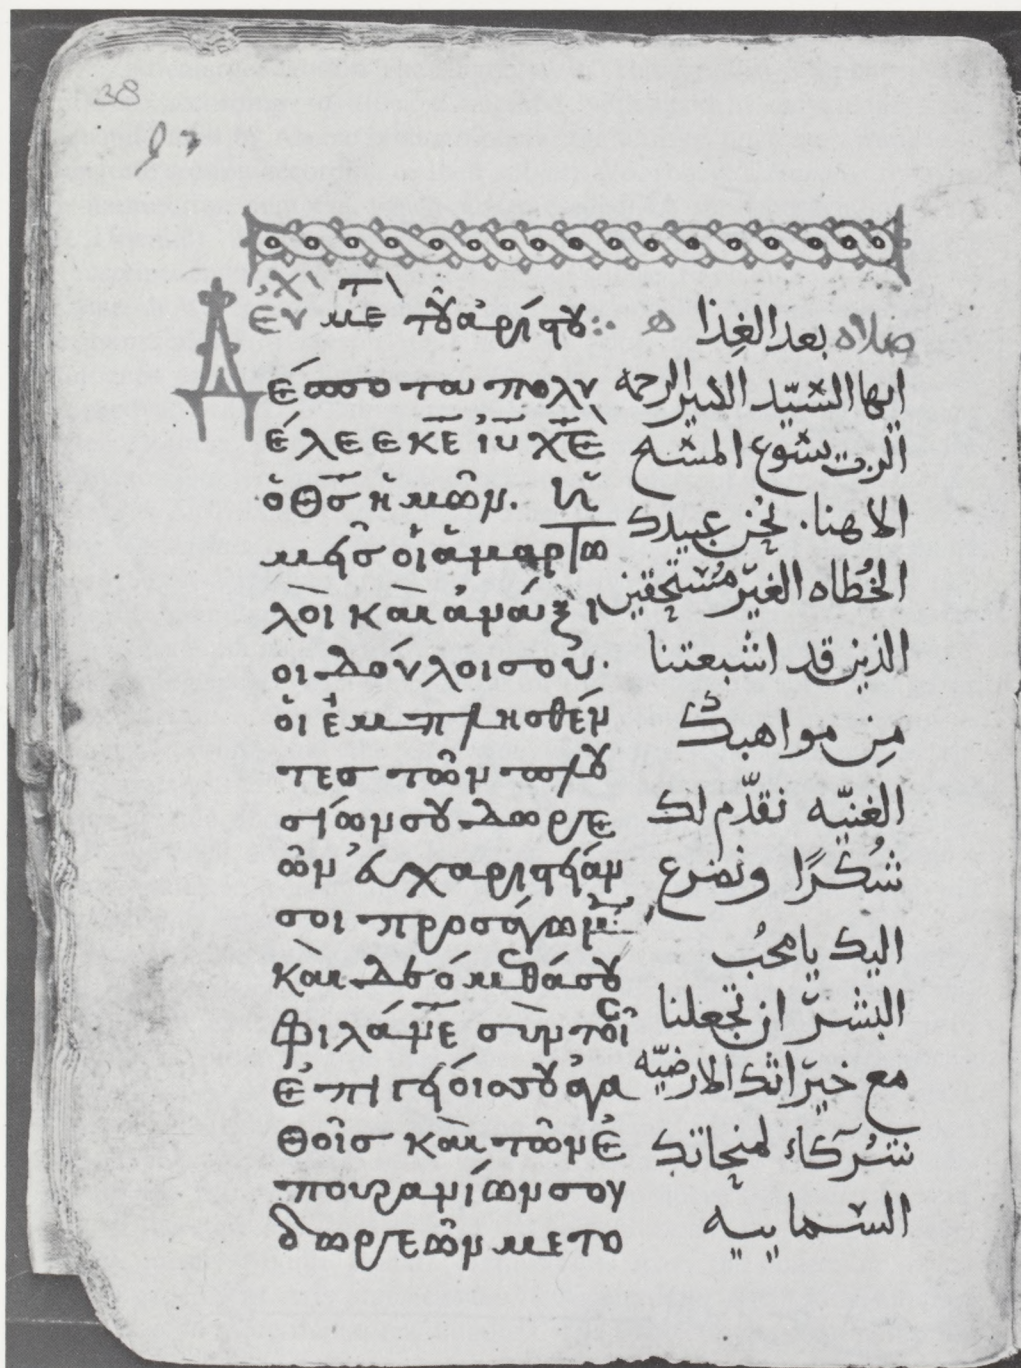 38
Εὐχ μετ τοῦ ἀρίστου
Δέσποτα πολυ
έλεε κ̅ε̅ ἰ̅υ̅ χ̅ε̅
ὁ θ̅σ̅ ἡμῶν. ἡ
μεῖσ οἱ ἁμαρτω
λοὶ καὶ ἀνάξι
οι δοῦλοι σοὺ·
οἱ ἐμπλησθέν
τεσ τῶν πλου
σίων σου δωρε
ῶν εὐχαριστείαν
σοι προσάγωμεν
καὶ δεόμεθά σου
φιλά̅ν̅ε̅ σὺν τοῖσ
ἐπιγείοισ σου ἀγα
θοῖσ καὶ τῶν ἐ
πουρανίων σου
δωρεῶν μετο
صلاه بعد الغِذا
ايها السّيّد الكثير الرحمه
الرب يسوع المسيح
الاهنا. نحُن عبيدك
الخُطاه الغيّر مُستحقين
الذين قد اشبعتنا
مِن مواهبك
الغنيّه نقدّم لك
شُكرًا ونضرع
اليك يا محُب
البشرّ ان تجعلنا
مع خيرّاتك الارضيّه
شُركاء لمنحاتك
السماييه